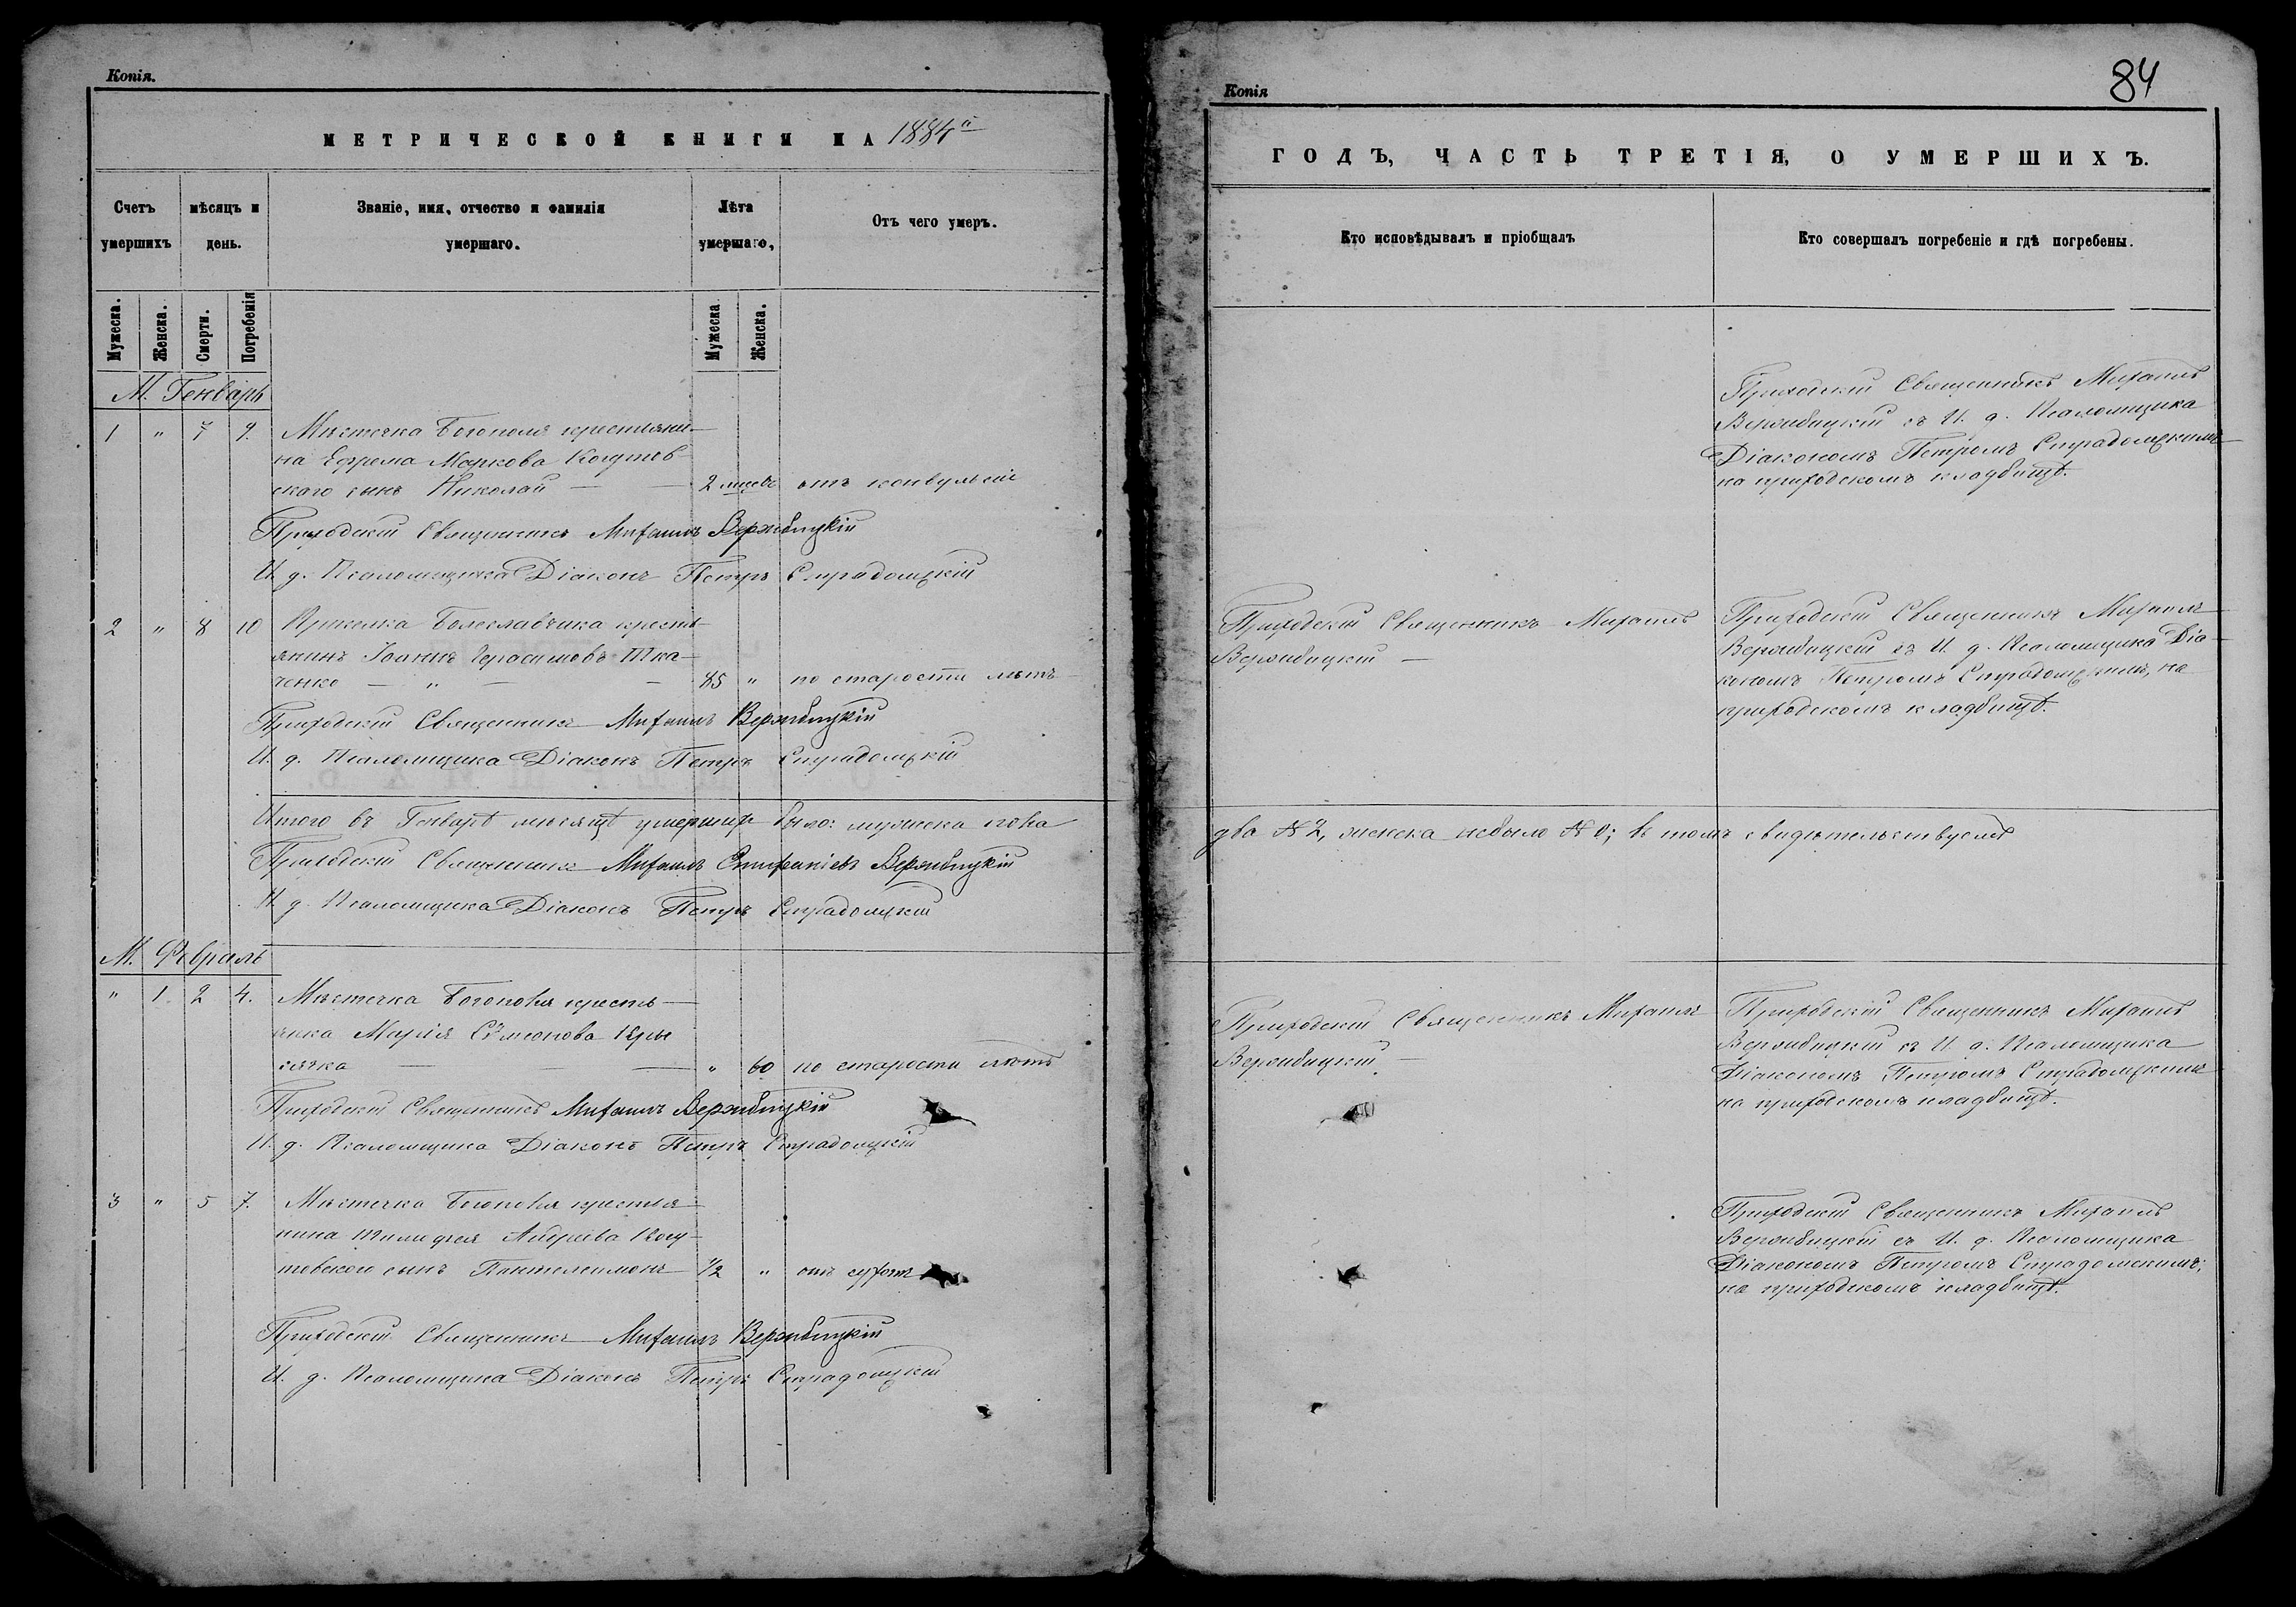 Копія.
МЕТРИЧЕСКОЙ КНИГИ НА 1884й
Счетъ умершихъ
мѣсяцъ и день.
Званіе, имя, отчество и фамилія умершаго.
Лѣта умершаго,
Отъ чего умеръ.
Мужеска.
Женска.
Смерти.
Погребенія
Мужеска
Женска.
М. Генварь
1 " 7 9. Мѣстечка Богополя крестьяни-
на Ефрема Маркова
скаго сынъ Николай — — 2 мѣсяц. отъ конвульсій
Приходскій Священникъ Михаилъ Вержбицкій
И. д. Псаломщика Діаконъ Петръ Страдомскій
2 " 8 10 Присѐлка Болеславчика кресть-
янинъ Іоаннъ Герасимовъ Тка-
ченко — " — — 85 " по старости лѣтъ
Приходскій Священникъ Михаилъ Вержбицкій
И. д. Псаломщика Діаконъ Петръ Страдомскій
Итого въ Генварѣ мѣсяцѣ умершихъ было: мужеска пола
Приходскій Священникъ Михаилъ Епифаніевъ Вержбицкій
И. д. Псаломщика Діаконъ Петръ Страдомскій
М. Февраль
" 1. 2 4. Мѣстечка Богополя кресть-
янка Марія Сѵмеонова
— — — " 60 по старости лѣтъ
Приходскій Священникъ Михаилъ Вержбицкій
И. д. Псаломщика Діаконъ Петръ Страдомскій
3 " 5 7. Мѣстечка Богополя крестья-
нина Тимофея Андреева
сынъ Пантелеимонъ 1/2 " отъ сухотъ
Приходскій Священникъ Михаилъ Вержбицкій
И. д. Псаломщика Діаконъ Петръ Страдомскій
Копія
84
ГОДЪ, ЧАСТЬ ТРЕТІЯ, О УМЕРШИХЪ.
Кто исповѣдывалъ и пріобщалъ
Кто совершалъ погребеніе и гдѣ погребены.
Приходскій Священникъ Михаилъ
Вержбицкій съ И. д. Псаломщика
Діакономъ Петромъ Страдомскимъ
на приходскомъ кладбищѣ.
Приходскій Священникъ Михаилъ
Вержбицкій —
Приходскій Священникъ Михаилъ
Вержбицкій съ И. д. Псаломщика Діа-
кономъ Петромъ Страдомскимъ, на
приходскомъ кладбищѣ.
два № 2, женска небыло № 0; въ томъ свидѣтельствуемъ
Приходскій Священникъ Михаилъ
Вержбицкій —
Приходскій Священникъ Михаилъ
Вержбицкій съ И. д. Псаломщика
Діакономъ Петромъ Страдомскимъ
на приходскомъ кладбищѣ.
Приходскій Священникъ Михаилъ
Вержбицкій съ И. д. Псаломщика
Діакономъ Петромъ Страдомскимъ;
на приходскомъ кладбищѣ.